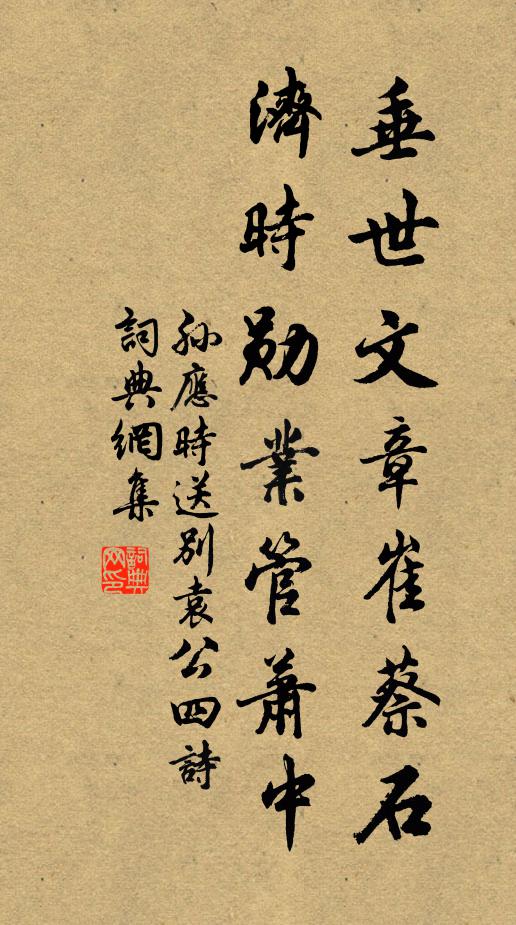 垂世文章崔蔡石
濟時勛業管蕭中
孫應時送別袁公四詩
詞典網集
詞典
網印